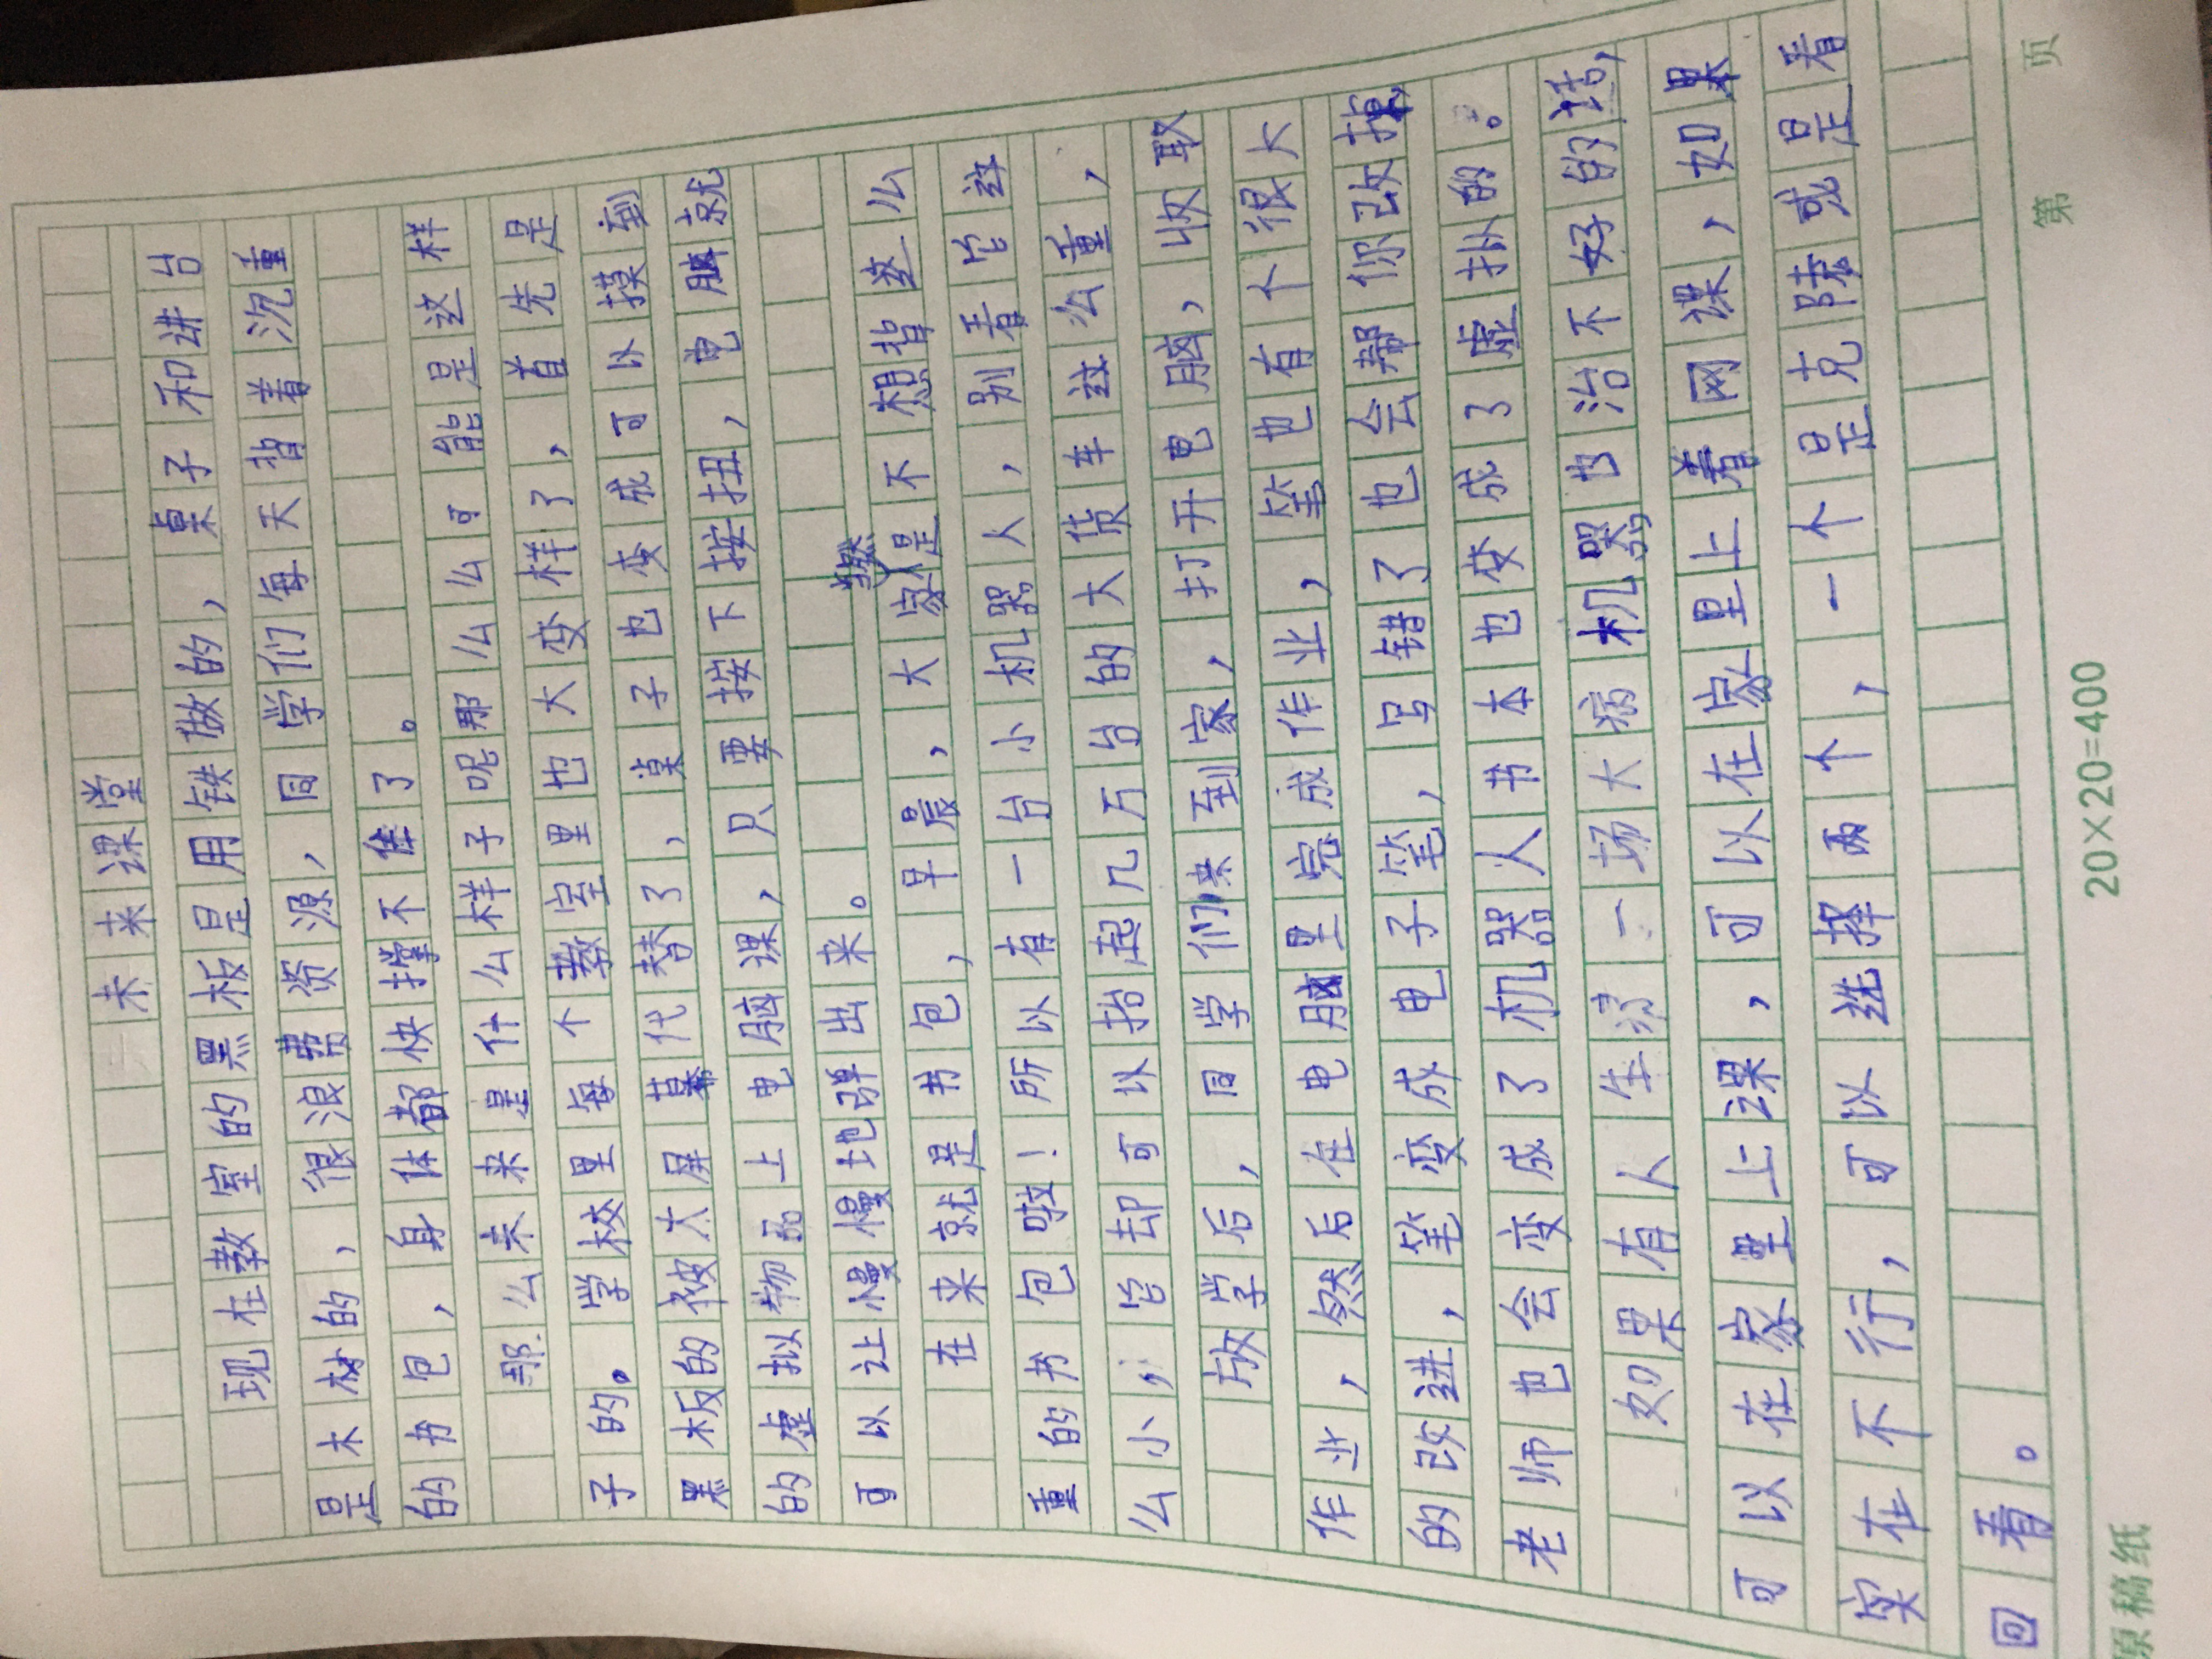 未来课堂
现在教室的黑板是用铁做的，桌子和讲台
是木材的，很浪费资源，同学们每天背着沉重
的书包，身体都快撑不住了。
那么未来是什么样子呢那么么可能是这样
子的。学校里每个教室里也大变样了，首先是
黑板的被大屏幕代替了，桌子也变成可以摸到
的虚拟物品上电脑课，只要按下按扭，电脑就
可以让慢慢地弹出来。
当然
在来就是书包，早晨，大家是不想背这么
重的书包啦！所以有一台小机器人，别看它这
么小，它却可以抬起几万台的大货车这么重，
放学后，同学们来到家，打开电脑，收取
作业，然后在电脑里完成作业，笔也有个很大
的改进，笔变成电子笔，写错了也会帮你改掉，
老师也会变成了机器人书本也变成了虚拟的。
如果有人生病一场大病机器也治不好的话，
可以在家里上课，可以在家里上着网课，如果
实在不行，可以选择两个，一个是克隆或是看
回看。
20×20=400
第 页
原稿纸